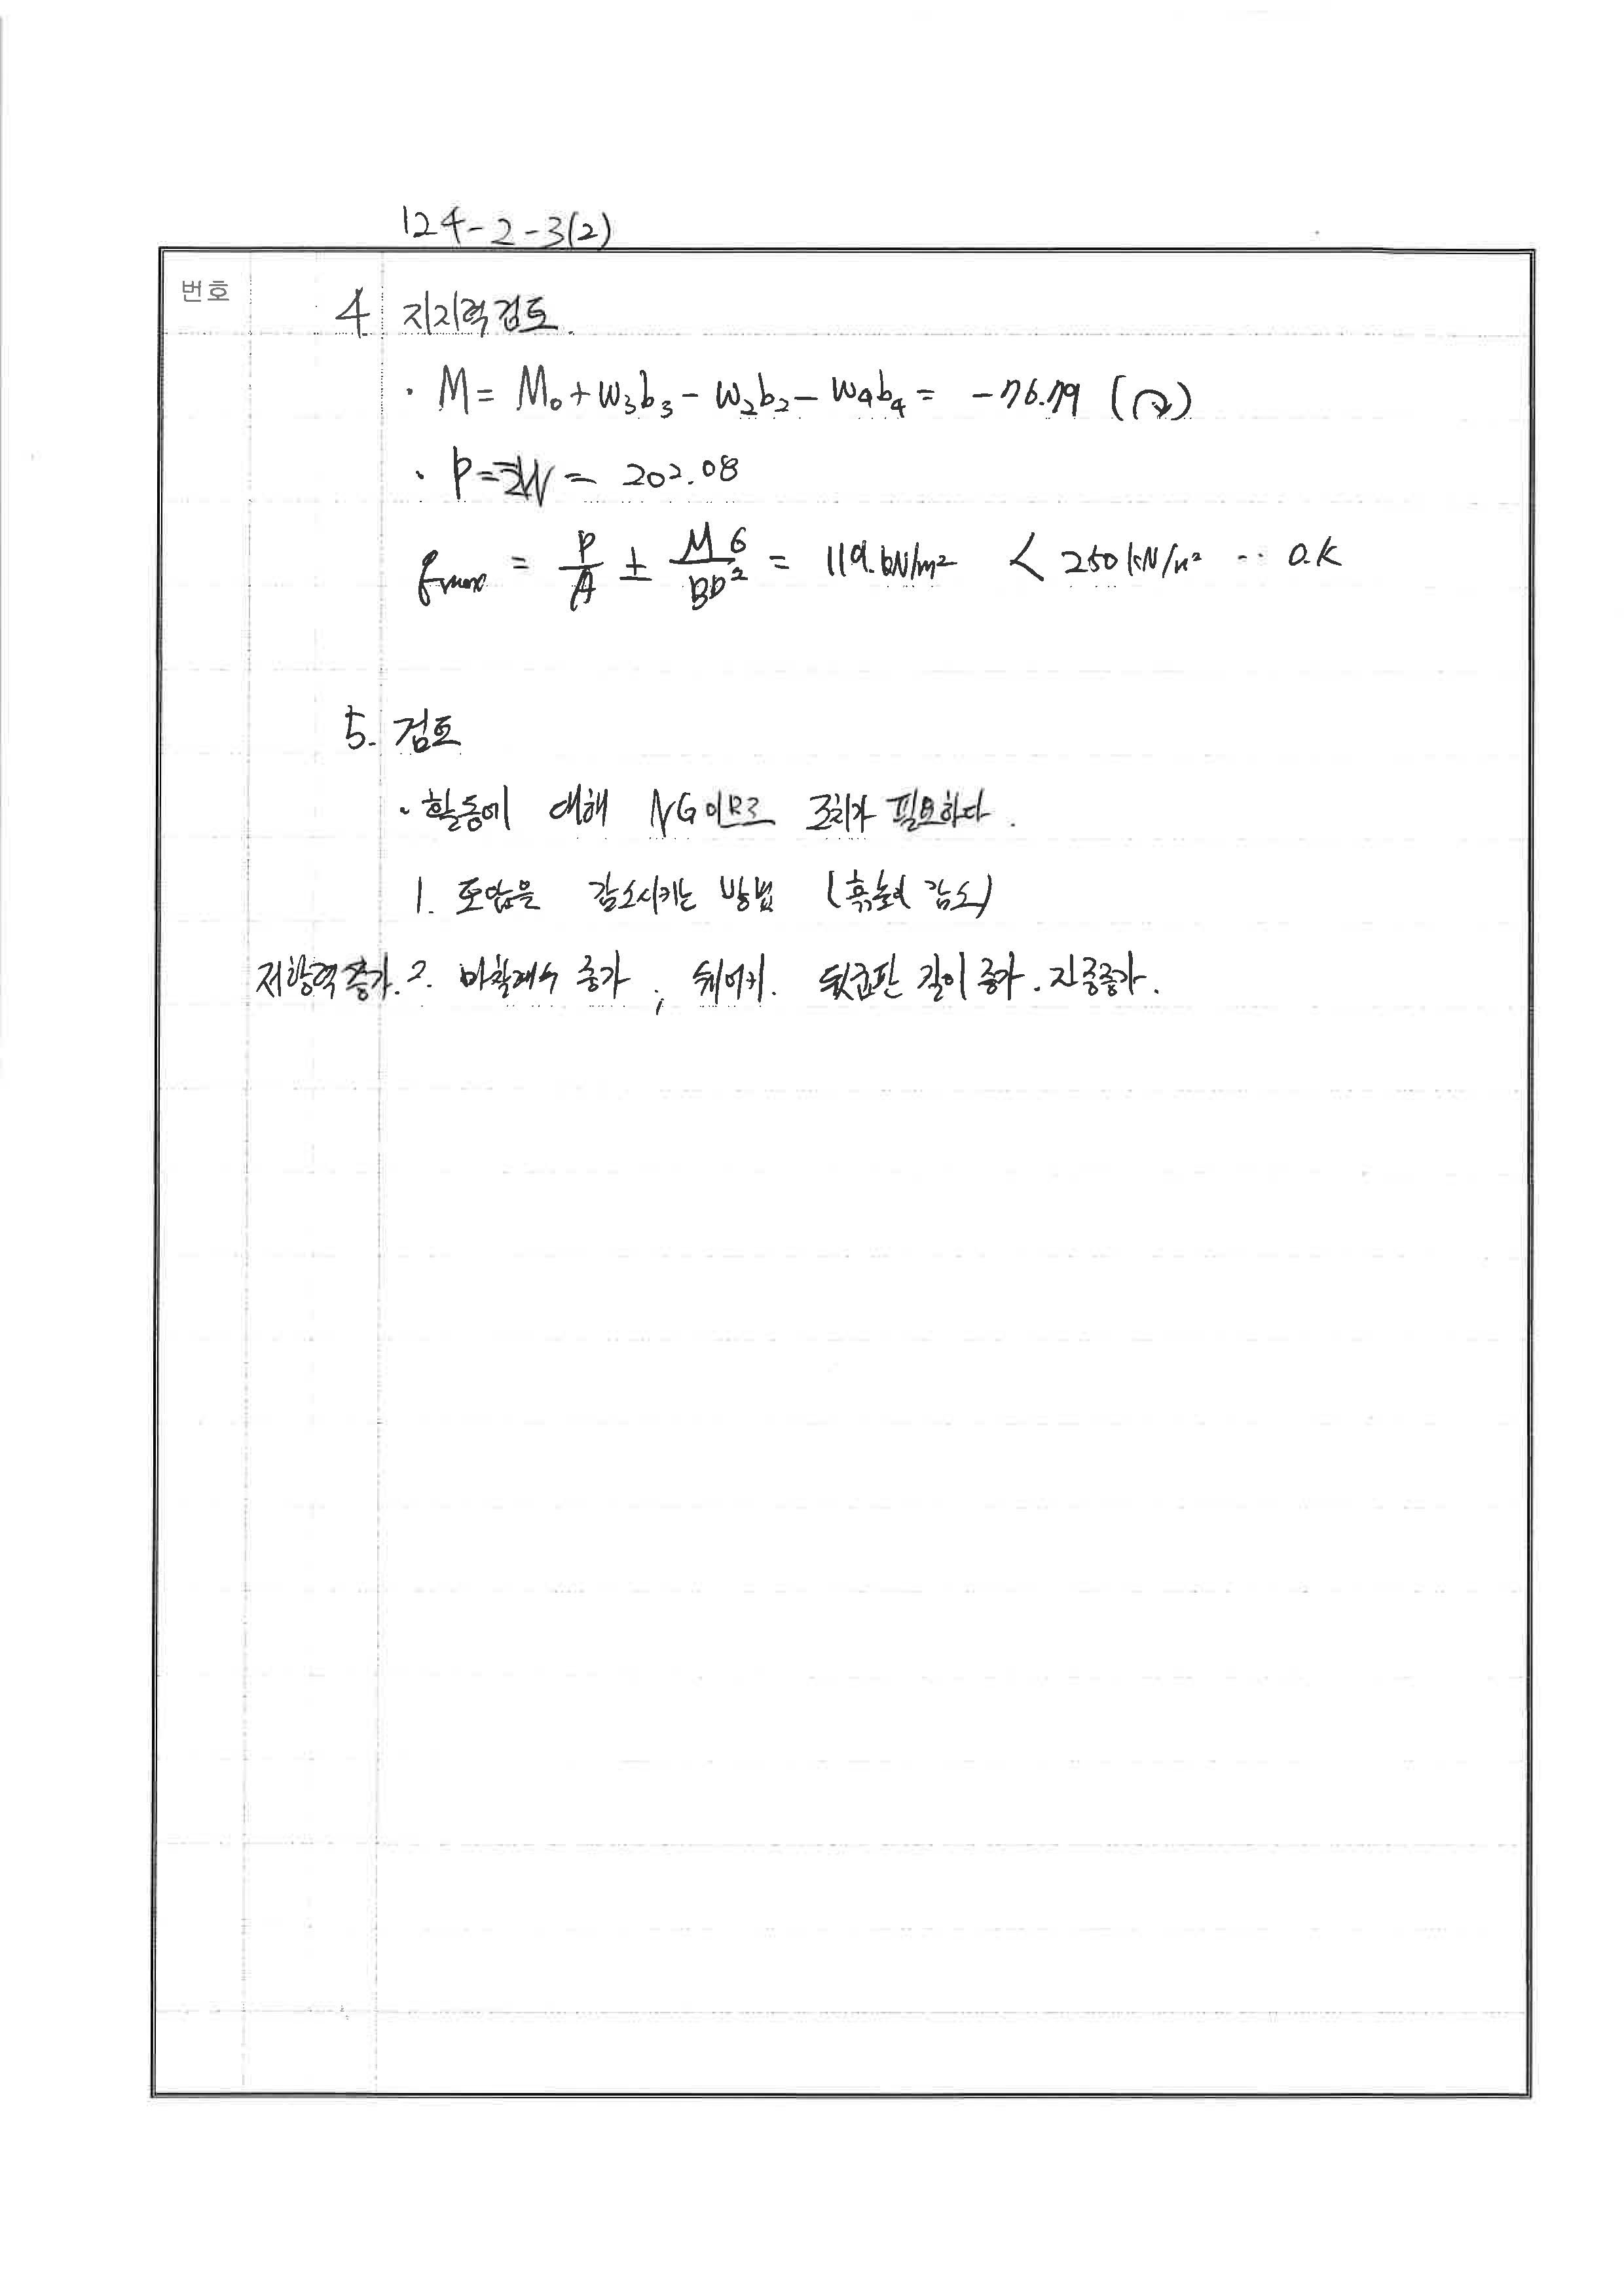 124-2-3(2)
번호
4 지지력검토.
· M = M₀ + W₃b₃ - W₂b₂ - W₄b₄ = -76.79 (↷)
· P = ΣW = 202.08
q_max = P/A ± M6/BD² = 119. kN/m² < 250 kN/m² ‥ O.K
5. 검토
· 활동에 대해 NG이므로 조치가 필요하다.
1. 토압을 감소시키는 방법 (흙높이 감소)
저항력증가. 2. 마찰계수 증가, 쉬어키. 뒷굽판 길이 증가. 자중증가.